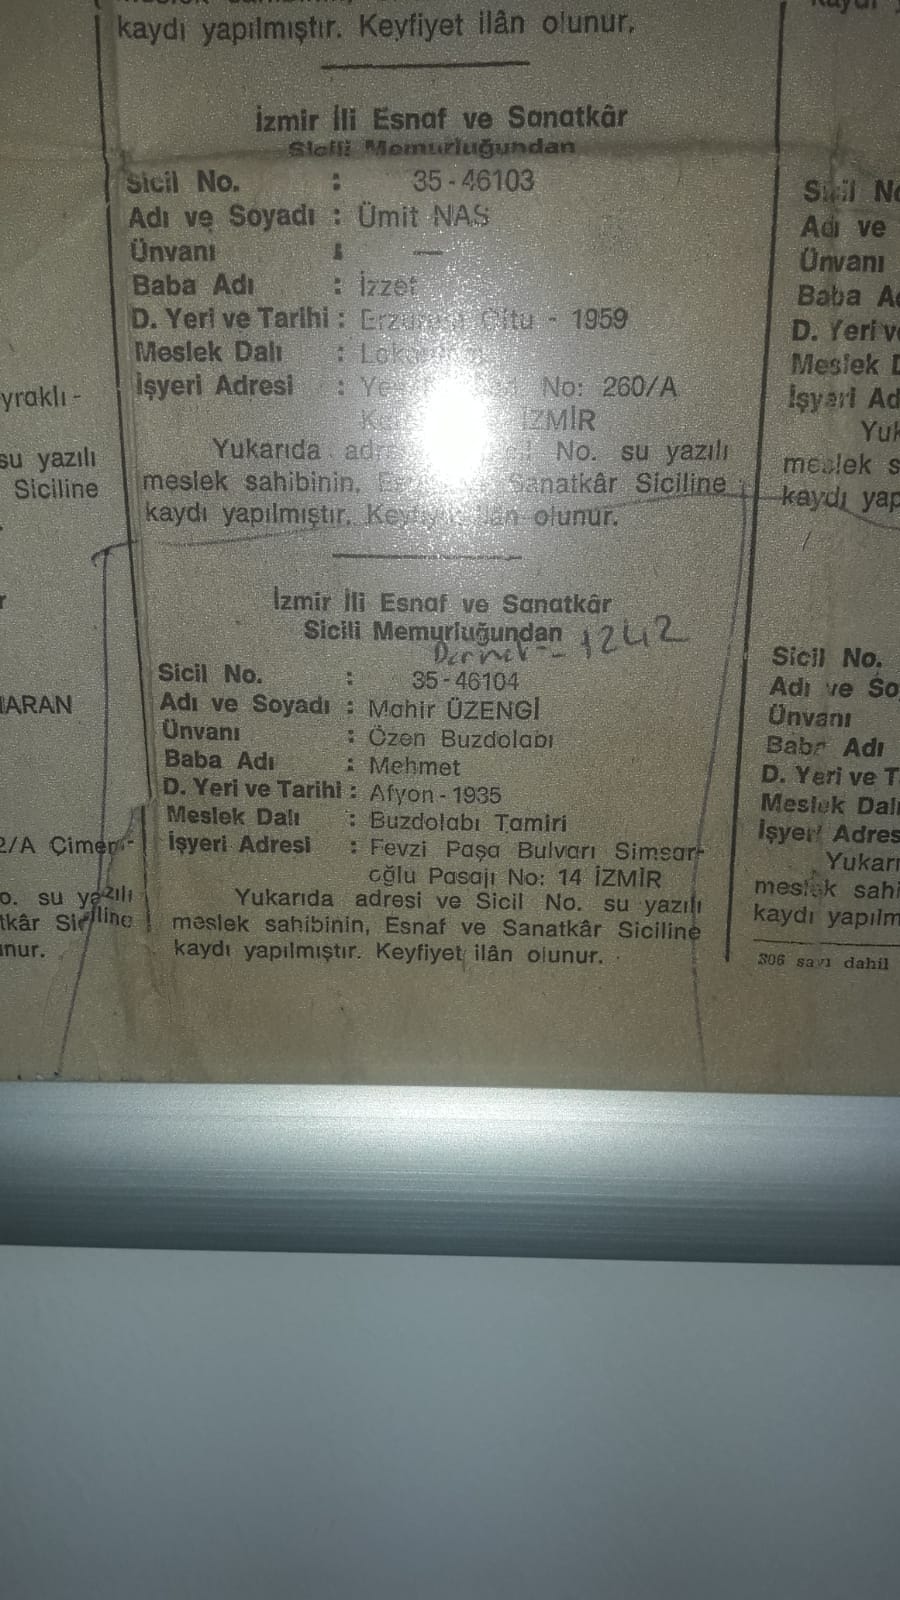 kaydı yapılmıştır. Keyfiyet ilân olunur.
İzmir İli Esnaf ve Sanatkâr
Sicili Memurluğundan
Sicil No. : 35-46103
Adı ve Soyadı : Ümit NAS
Ünvanı : —
Baba Adı : İzzet
D. Yeri ve Tarihi : Erzurum Oltu - 1959
Meslek Dalı :
İşyeri Adresi : No: 260/A
İZMİR
Yukarıda No. su yazılı
meslek sahibinin, Sanatkâr Siciline
kaydı yapılmıştır. Keyfiyet ilân olunur.
İzmir İli Esnaf ve Sanatkâr
Sicili Memurluğundan
Dernek - 1242
Sicil No. : 35-46104
Adı ve Soyadı : Mahir ÜZENGİ
Ünvanı : Özen Buzdolabı
Baba Adı : Mehmet
D. Yeri ve Tarihi : Afyon - 1935
Meslek Dalı : Buzdolabı Tamiri
İşyeri Adresi : Fevzi Paşa Bulvarı Simsar-
oğlu Pasajı No: 14 İZMİR
Yukarıda adresi ve Sicil No. su yazılı
meslek sahibinin, Esnaf ve Sanatkâr Siciline
kaydı yapılmıştır. Keyfiyet ilân olunur.
yraklı -
su yazılı
Siciline
ARAN
2/A Çimen-
o. su yazılı
tkâr Siciline
unur.
Sicil No
Adı ve
Ünvanı
Baba A
D. Yeri v
Meslek D
İşyeri Ad
Yuk
meslek s
kaydı yap
Sicil No.
Adı ve So
Ünvanı
Baba Adı
D. Yeri ve T
Meslek Dalı
İşyeri Adres
Yukarı
meslek sahi
kaydı yapılm
306 sayı dahil